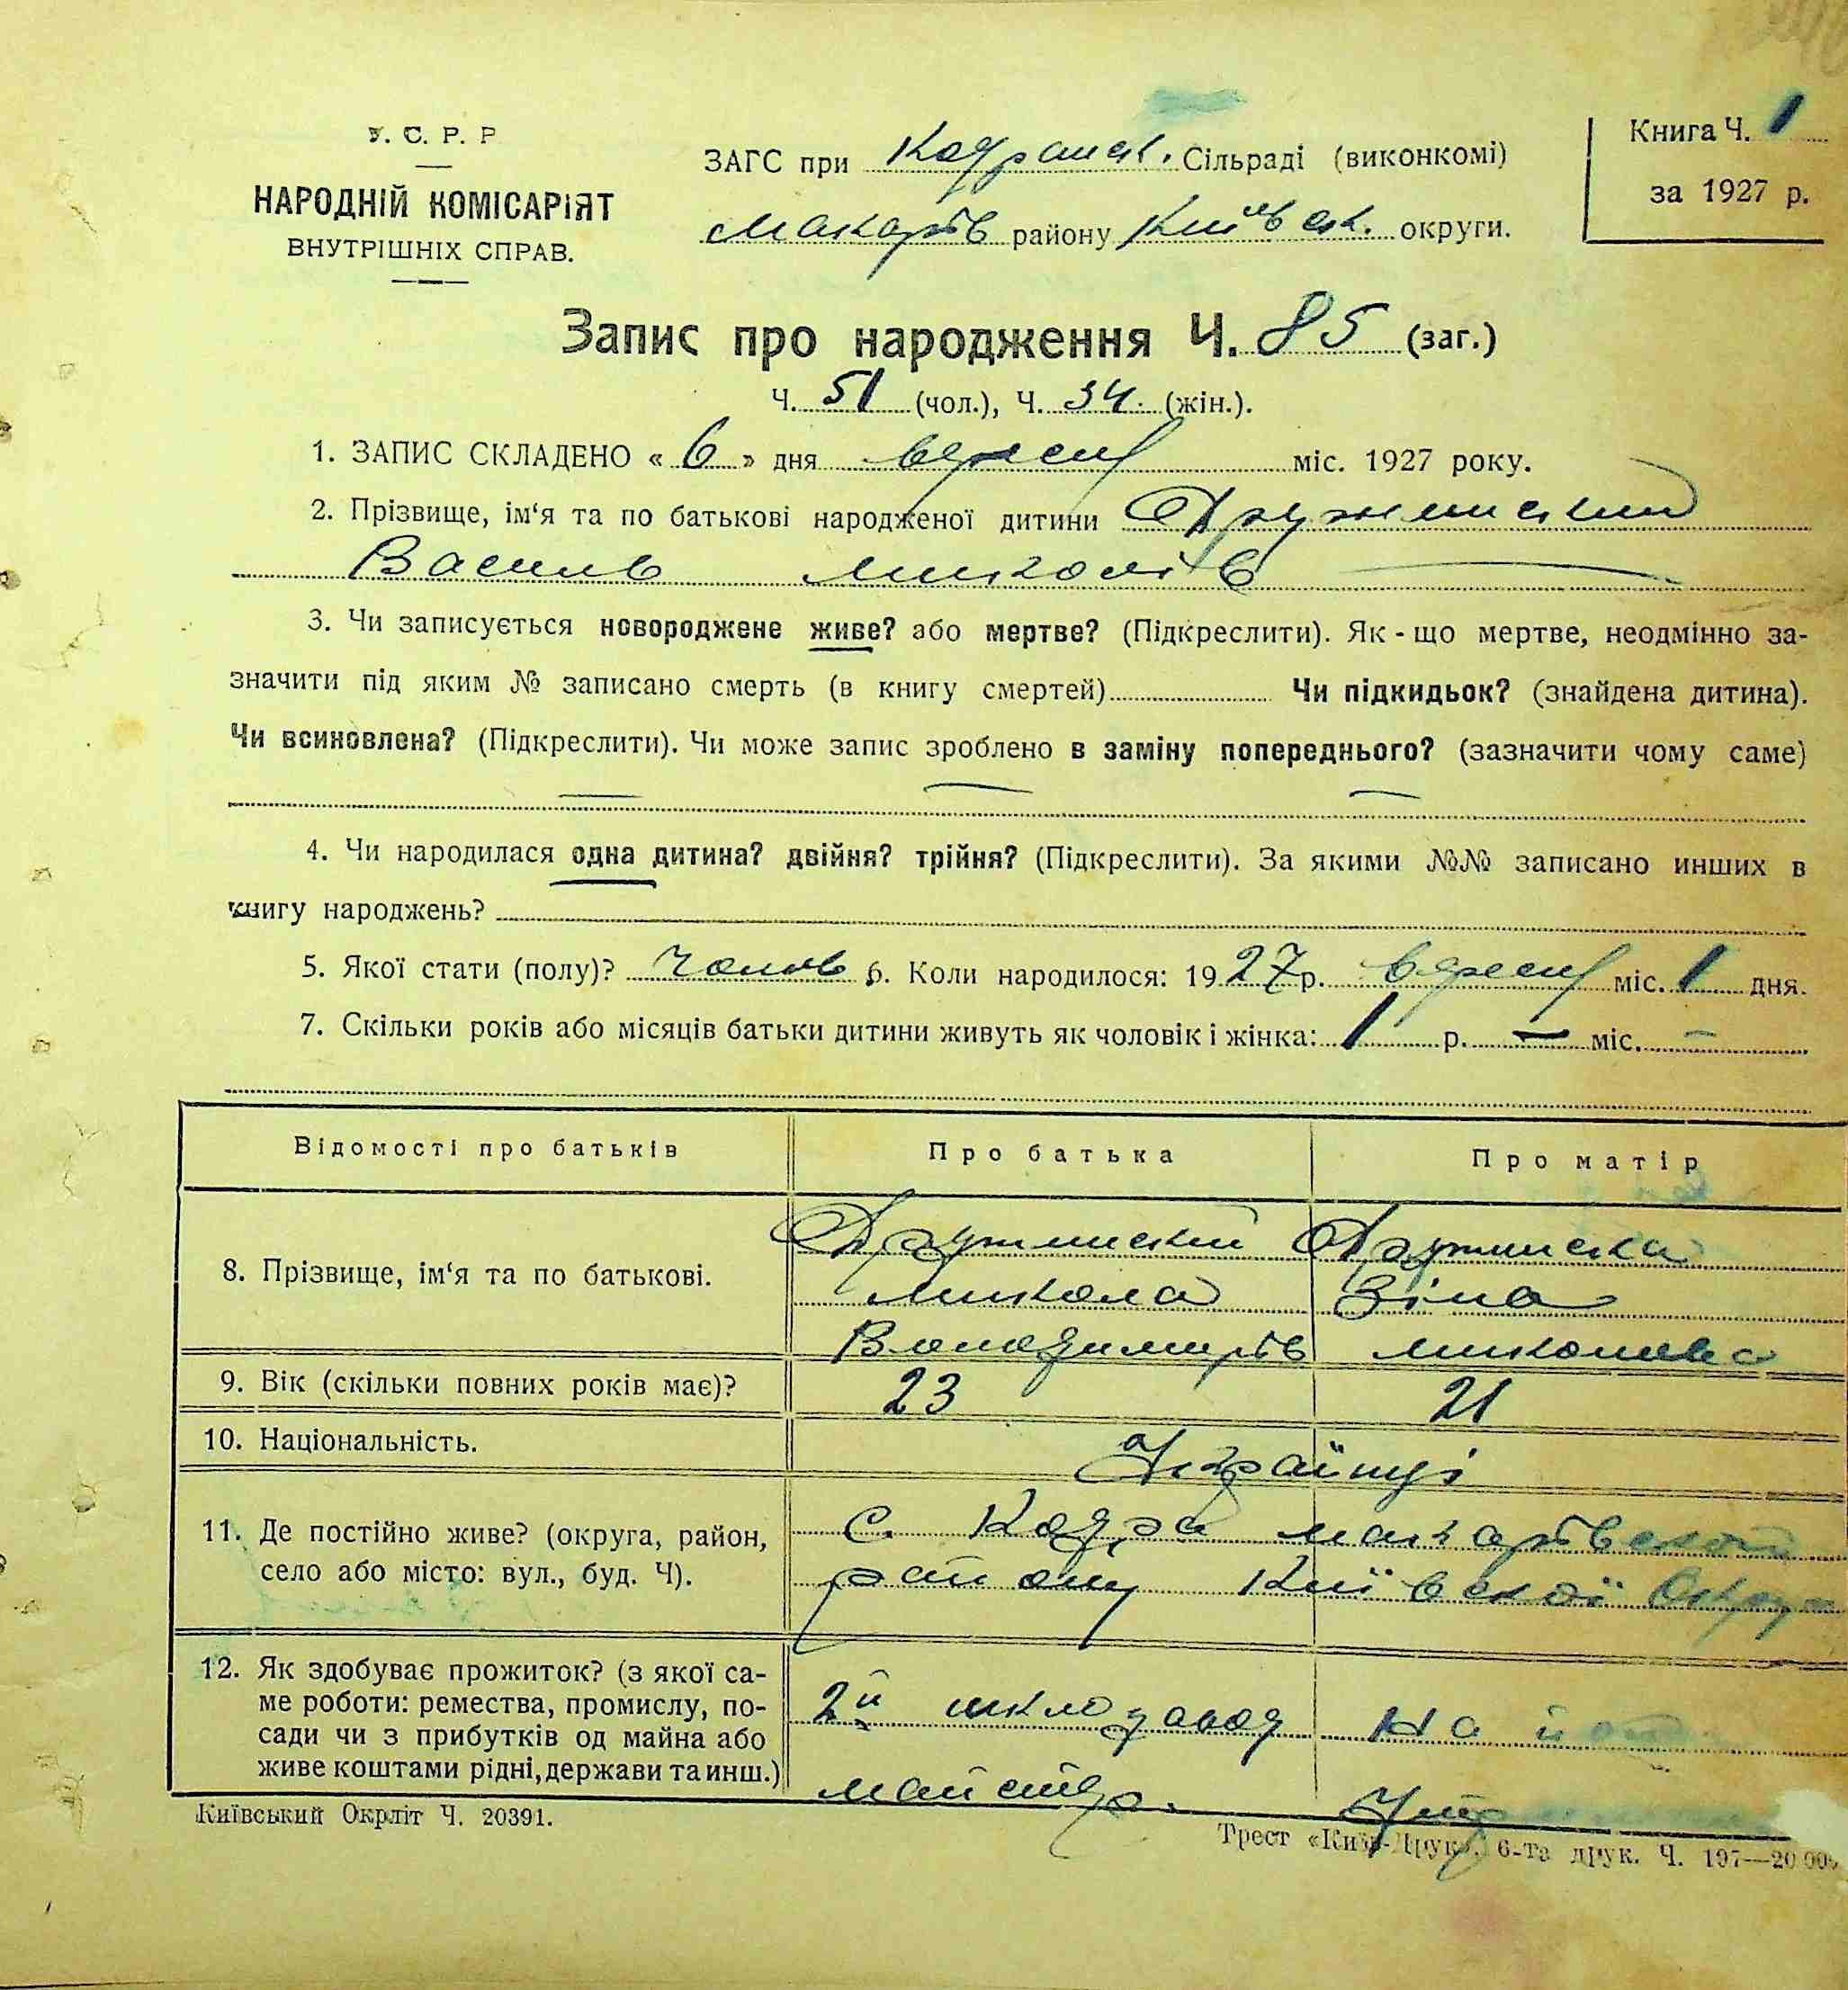 У. С. Р. Р
НАРОДНІЙ КОМІСАРІЯТ
ВНУТРІШНІХ СПРАВ.
ЗАГС при Кодранськ. Сільраді (виконкомі)
Макарів району Київськ. округи.
Книга Ч. 1
за 1927 р.
Запис про народження Ч. 85 (заг.)
Ч. 51 (чол.), Ч. 34. (жін.).
1. ЗАПИС СКЛАДЕНО « 6 » дня вересня міс. 1927 року.
2. Прізвище, ім‘я та по батькові народженої дитини Дружинский
Василь Миколів
3. Чи записується новороджене живе? або мертве? (Підкреслити). Як - що мертве, неодмінно за-
значити під яким № записано смерть (в книгу смертей) Чи підкидьок? (знайдена дитина).
Чи всиновлена? (Підкреслити). Чи може запис зроблено в заміну попереднього? (зазначити чому саме)
4. Чи народилася одна дитина? двійня? трійня? (Підкреслити). За якими №№ записано инших в
книгу народжень?
5. Якої стати (полу)? чолов 6. Коли народилося: 1927 р. вересня міс. 1 дня.
7. Скільки років або місяців батьки дитини живуть як чоловік і жінка: 1 р. — міс. —
Відомості про батьків Про батька Про матір
8. Прізвище, ім‘я та по батькові.
Дружинский Дружинска
Микола Зіна
Володимирів Миколаєва
9. Вік (скільки повних років має)? 23 21
10. Національність. Українці
11. Де постійно живе? (округа, район,
село або місто: вул., буд. Ч).
с. Кодра Макарівской
району Київской Округи
12. Як здобуває прожиток? (з якої са-
ме роботи: ремества, промислу, по-
сади чи з прибутків од майна або
живе коштами рідні, держави та инш.)
2й шклозавод На й
майстер.
Київський Окрліт Ч. 20391.
Трест «Київ-Друк», 6-та друк. Ч. 197—20.000